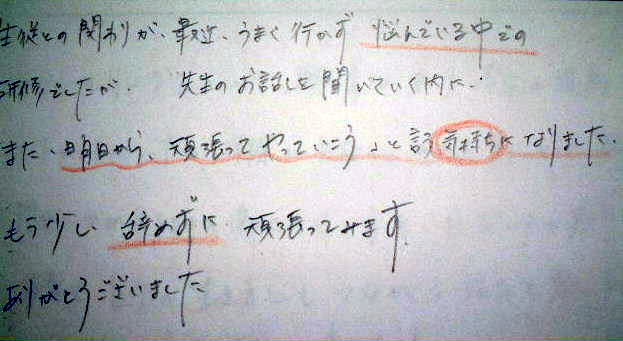 生徒との関わりが、最近、うまく行かず 悩んでいる中での
研修でしたが、 先生のお話しを聞いていく内に、
また、明日から、頑張ってやっていこう」と言う気持ちになりました.
もう少し 辞めずに 頑張ってみます.
ありがとうございました